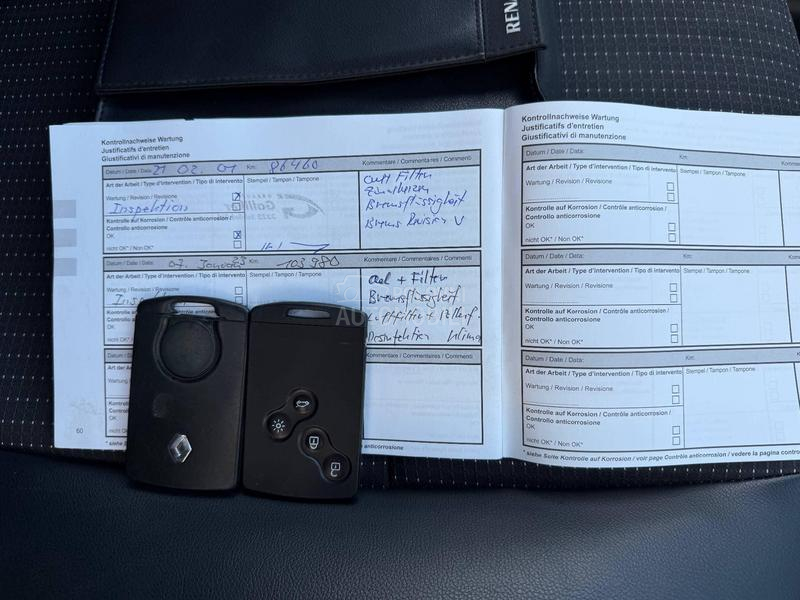 RENA
Kontrollnachweise Wartung
Justificatifs d'entretien
Giustificativi di manutenzione
Datum / Date / Data: 21 02. 01 Km: 86460
Art der Arbeit / Type d'intervention / Tipo di intervento
Stempel / Tampon / Tampone
Kommentare / Commentaires / Commenti
Wartung / Revision / Revisione
Inspektion
Kontrolle auf Korrosion / Contrôle anticorrosion /
Controllo anticorrosione
OK
nicht OK* / Non OK*
Filter
Bremsflüssigkeit
Brems Revision V
Datum / Date / Data: 07. Januar 23 Km: 103980
Art der Arbeit / Type d'intervention / Tipo di intervento
Stempel / Tampon / Tampone
Kommentare / Commentaires / Commenti
Wartung / Revision / Revisione
Oel + Filter
Bremsflüssigkeit
Luftfilter + Pollenf.
Desinfektion Klima
Kommentare / Commentaires / Commenti
OK
60
* siehe
anticorrosione
Kontrollnachweise Wartung
Justificatifs d'entretien
Giustificativi di manutenzione
Datum / Date / Data:
Km:
Art der Arbeit / Type d'intervention / Tipo di intervento
Stempel / Tampon / Tampone
Wartung / Revision / Revisione
Kontrolle auf Korrosion / Contrôle anticorrosion /
Controllo anticorrosione
OK
nicht OK* / Non OK*
Datum / Date / Data:
Km:
Art der Arbeit / Type d'intervention / Tipo di intervento
Stempel / Tampon / Tampone
Wartung / Revision / Revisione
Kontrolle auf Korrosion / Contrôle anticorrosion /
Controllo anticorrosione
OK
nicht OK* / Non OK*
Datum / Date / Data:
Km:
Art der Arbeit / Type d'intervention / Tipo di intervento
Stempel / Tampon / Tampone
Wartung / Revision / Revisione
Kontrolle auf Korrosion / Contrôle anticorrosion /
Controllo anticorrosione
OK
nicht OK* / Non OK*
* siehe Seite Kontrolle auf Korrosion / voir page Contrôle anticorrosion / vedere la pagina contro